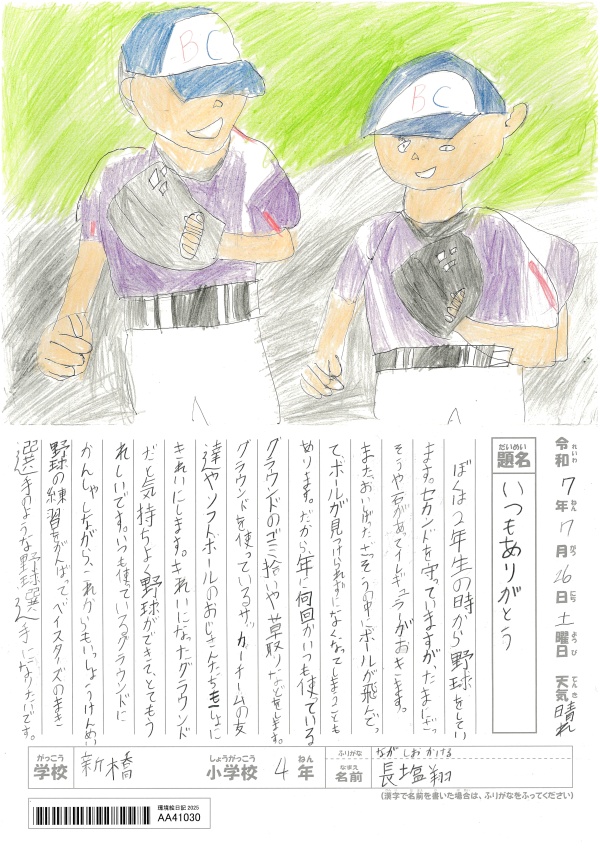 BC
BC
令和7年7月26日土曜日 天気 晴れ
れいわ ねん がつ にち ようび てんき
だいめい
題名
いつもありがとう
ぼくは2年生の時から野球をしてい
ます。セカンドを守っていますが、たまにざっ
そうや石があってイレギュラーがおきます。
また、おいしげったざっそうの中にボールが飛んでっ
て、ボールが見つけられずになくなってしまうことも
あります。だから、年に何回かいつも使っている
グラウンドのゴミ拾いや草取りなどをします。
グラウンドを使っているサッカーチームの友
達やソフトボールのおじさんたちもいっしょに
きれいにします。きれいになったグラウンド
だと気持ちよく野球ができて、とてもう
れしいです。いつも使っているグラウンドに
かんしゃしながら、これからもいっしょうけんめい
野球の練習をがんばって、ベイスターズのまき
選手のような野球選手になりたいです。
がっこう
学校
新橋
しょうがっこう
小学校
4
ねん
年
ふりがな
ながしお かける
なまえ
名前
長塩翔
(漢字で名前を書いた場合は、ふりがなをふってください)
環境絵日記 2025
AA41030